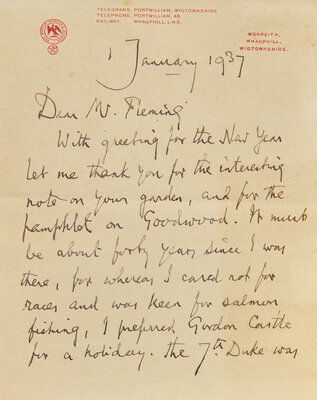 TELEGRAMS, PORTWILLIAM, WIGTOWNSHIRE.
TELEPHONE, PORTWILLIAM, 48.
RAILWAY. WHAUPHILL. L.M.S.
MONREITH,
WHAUPHILL,
WIGTOWNSHIRE.
1 January 1937
Dear Mr. Fleming
With greeting for the New Year
let me thank you for the interesting
note on your garden, and for the
pamphlet on Goodwood. It must
be about forty years since I was
there, for whereas I cared not for
races and was keen for salmon
fishing, I preferred Gordon Castle
for a holiday. The 7th Duke was